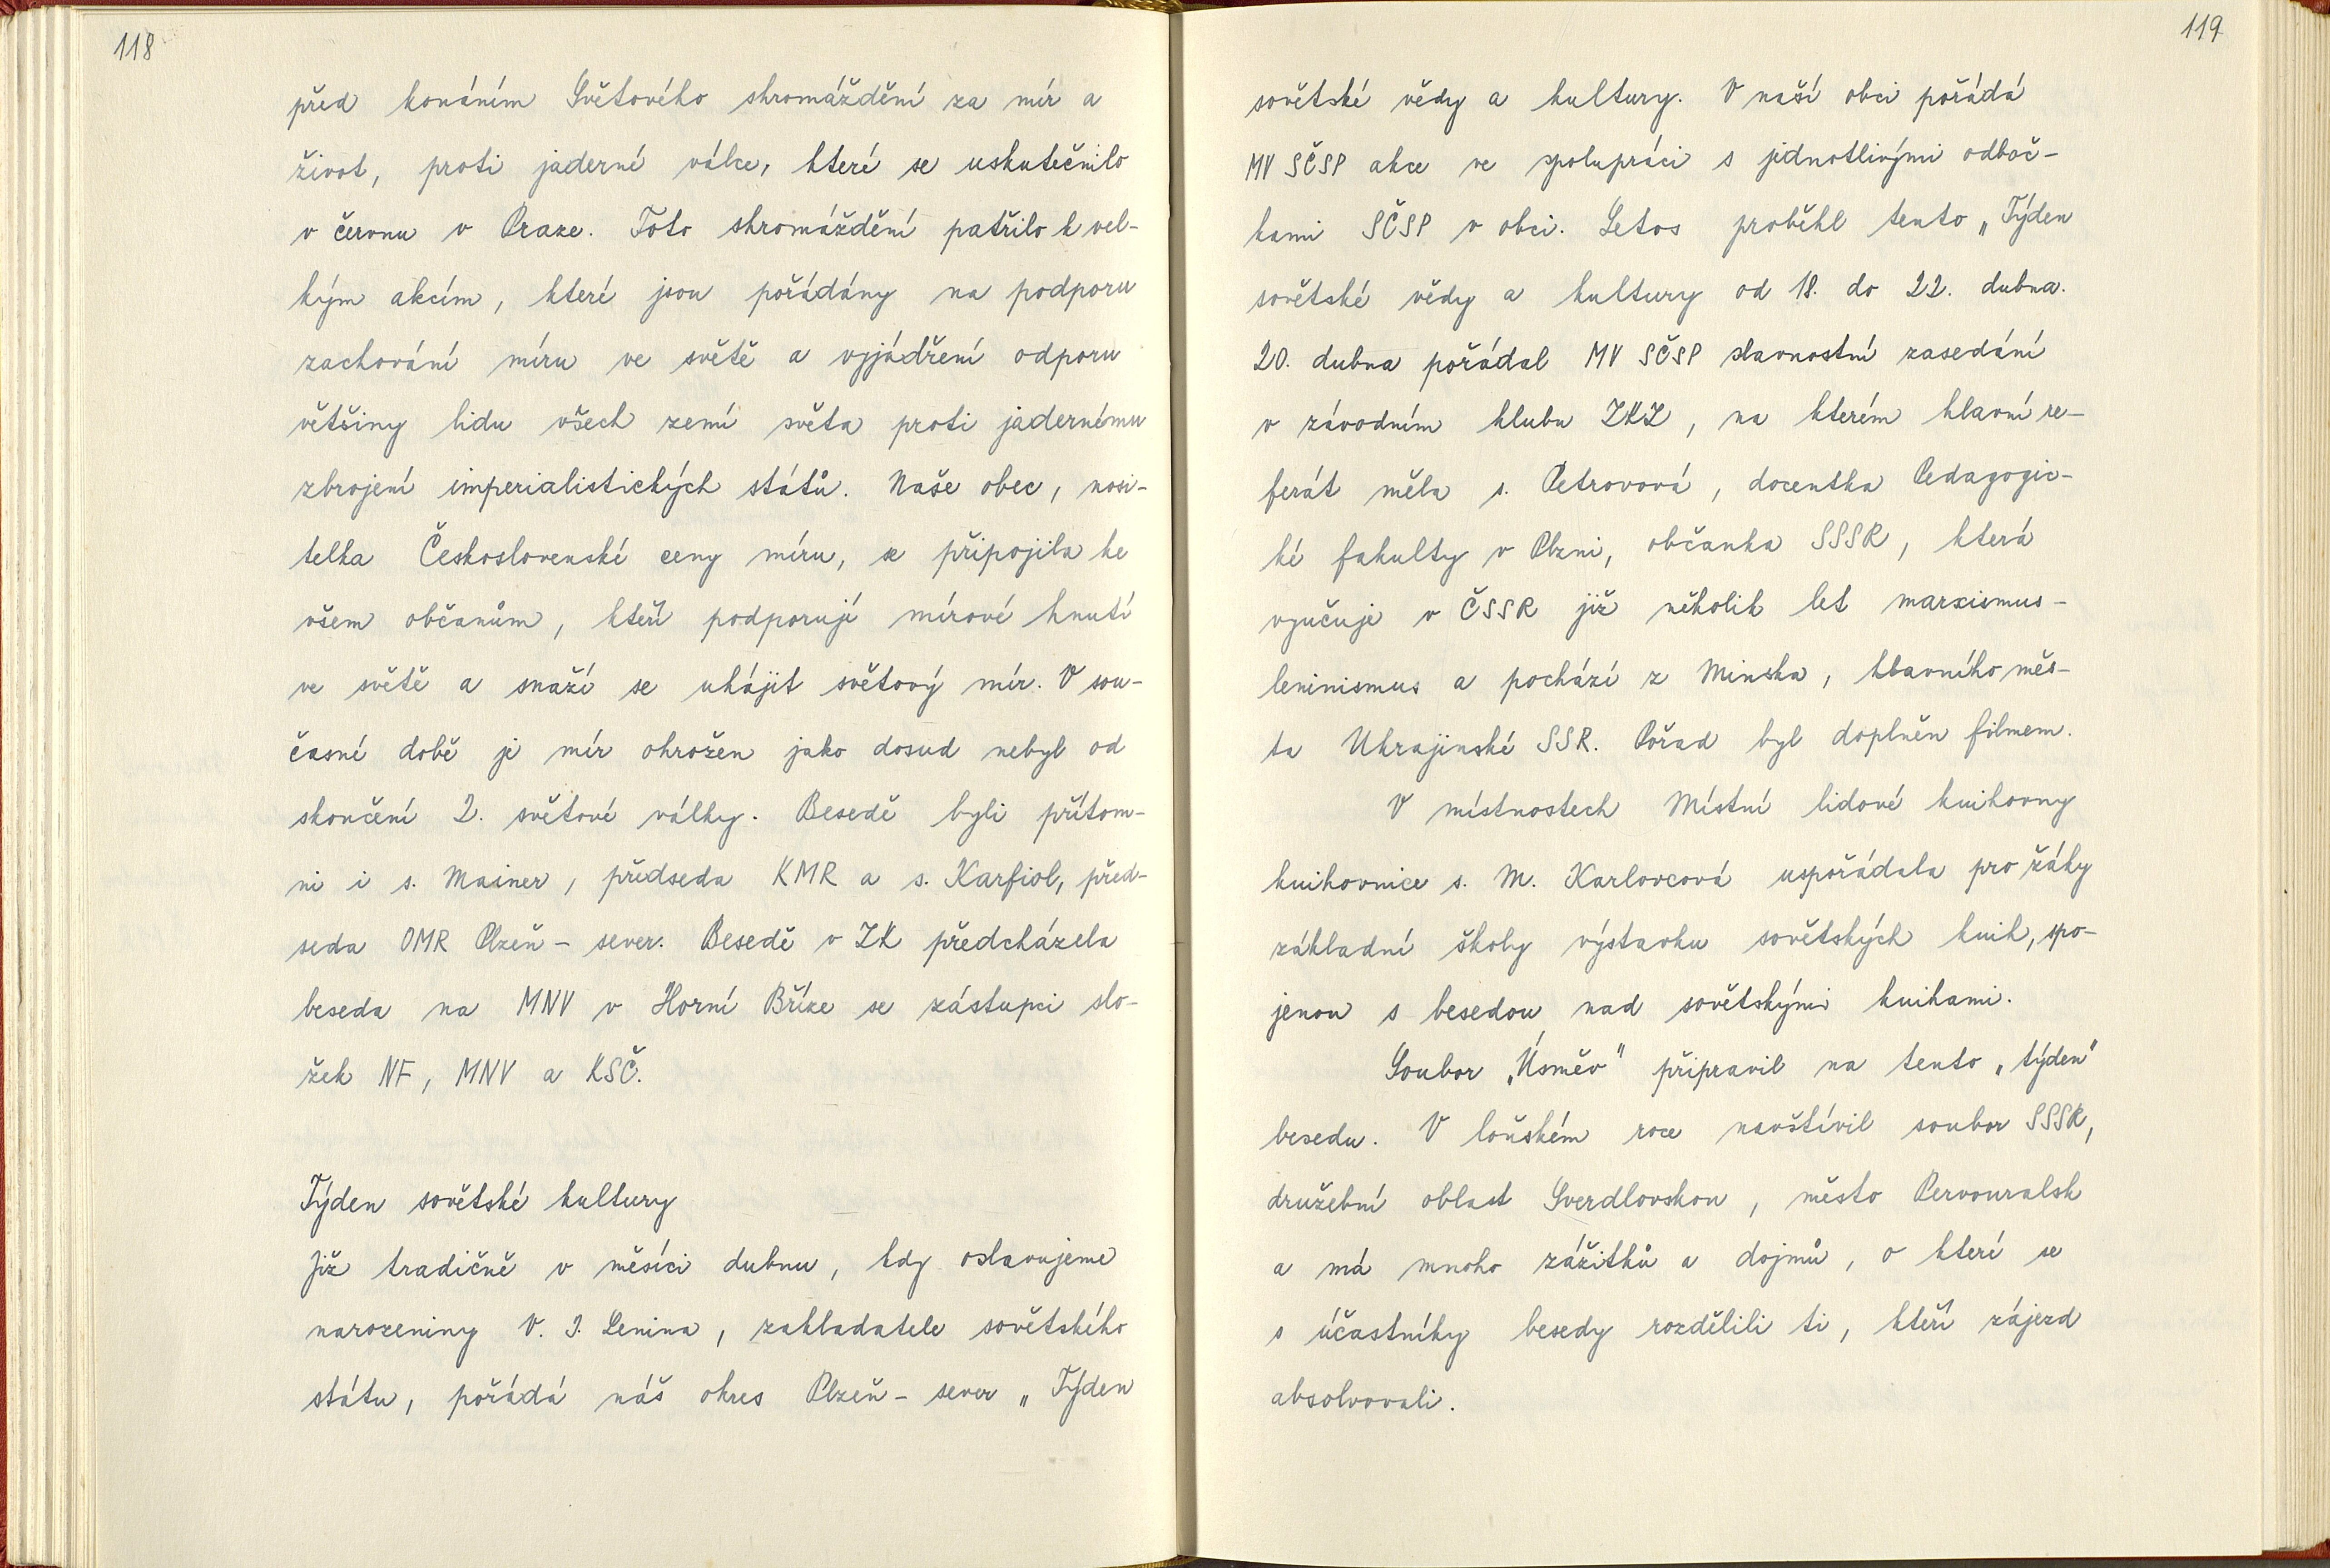 118
před konáním Světového shromáždění za mír a
život, proti jaderné válce, které se uskutečnilo
v červnu v Praze. Toto shromáždění patřilo k vel-
kým akcím, které jsou pořádány na podporu
zachování míru ve světě a vyjádření odporu
většiny lidu všech zemí světa proti jadernému
zbrojení imperialistických států. Naše obec, nosi-
telka Československé ceny míru, se připojila ke
všem občanům, kteří podporují mírové hnutí
ve světě a snaží se uhájit světový mír. V sou-
časné době je mír ohrožen jako dosud nebyl od
skončení 2. světové války. Besedě byli přítom-
ni i s. Mainer, předseda KMR a s. Karfiol, před-
seda OMR Plzeň - sever. Besedě v ZK předcházela
beseda na MNV v Horní Bříze se zástupci slo-
žek NF, MNV a KSČ.
Týden sovětské kultury
Již tradičně v měsíci dubnu, kdy oslavujeme
narozeniny V. I. Lenina, zakladatele sovětského
státu, pořádá náš okres Plzeň - sever „Týden
119
sovětské vědy a kultury. V naší obci pořádá
MV SČSP akce ve spolupráci s jednotlivými odboč-
kami SČSP v obci. Letos proběhl tento „Týden
sovětské vědy a kultury od 18. do 22. dubna.
20. dubna pořádal MV SČSP slavnostní zasedání
v závodním klubu ZKZ, na kterém hlavní re-
ferát měla s. Petrovová, docentka Pedagogic-
ké fakulty v Plzni, občanka SSSR, která
vyučuje v ČSSR již několik let marxismus-
leninismus a pochází z Minska, hlavního měs-
ta Ukrajinské SSR. Pořad byl doplněn filmem.
V místnostech Místní lidové knihovny
knihovnice s. M. Karlovcová uspořádala pro žáky
základní školy výstavku sovětských knih, spo-
jenou s besedou nad sovětskými knihami.
Soubor „Úsměv" připravil na tento „týden"
besedu. V loňském roce navštívil soubor SSSR,
družební oblast Sverdlovskou, město Pervouralsk
a má mnoho zážitků a dojmů, o které se
s účastníky besedy rozdělili ti, kteří zájezd
absolvovali.